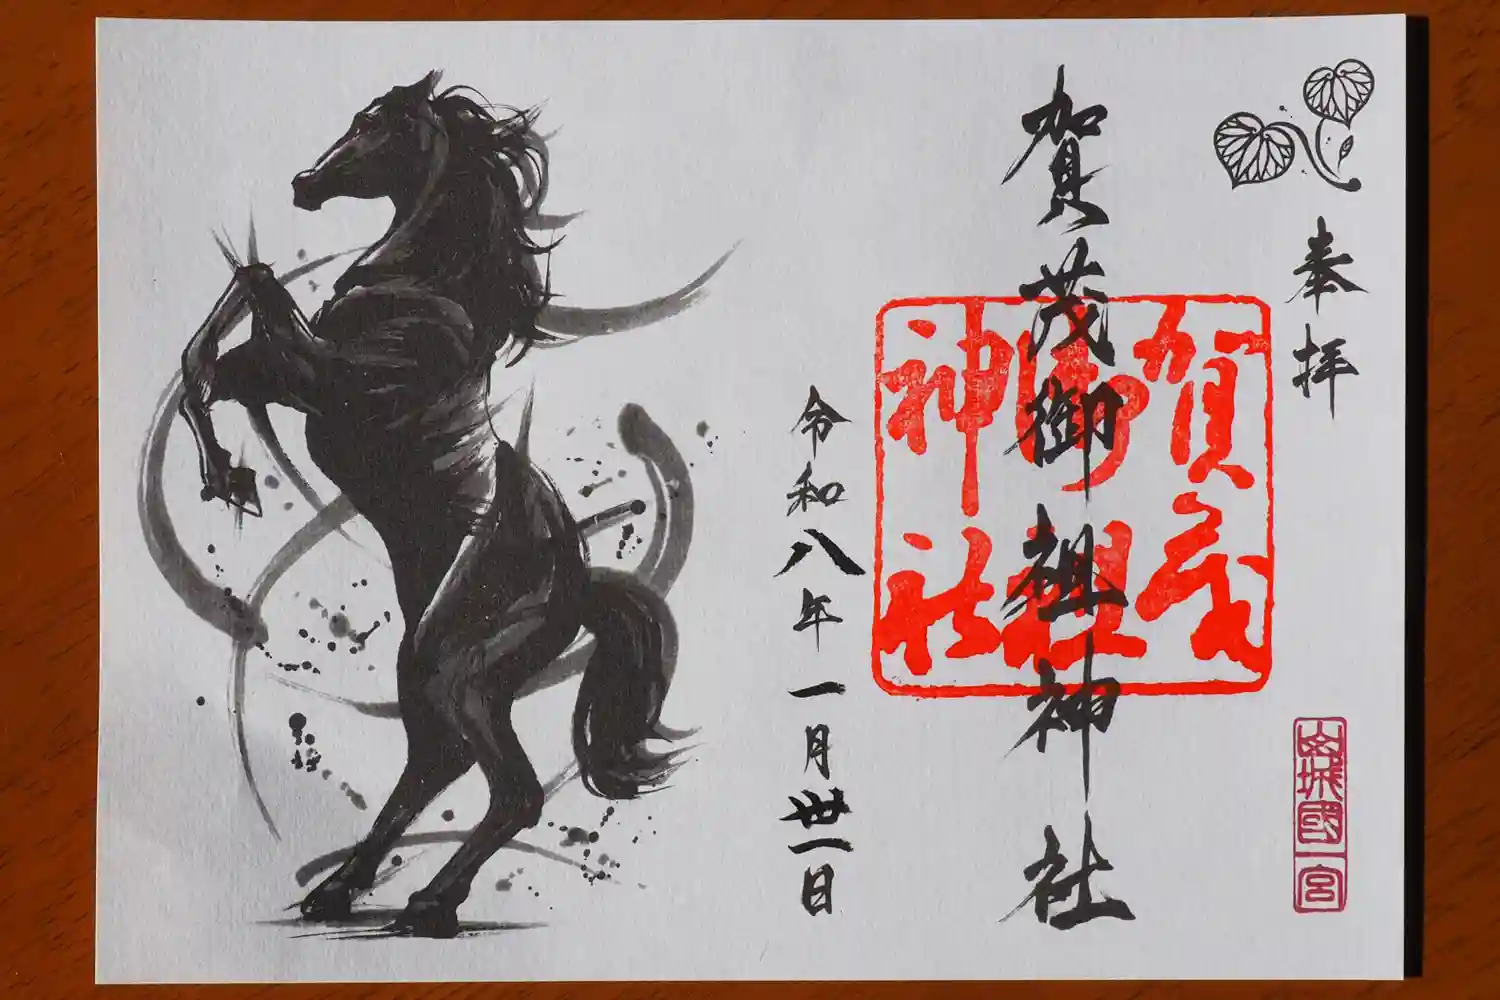 奉拝
山城國一宮
賀茂御祖神社
賀茂御祖神社
令和八年一月丗一日